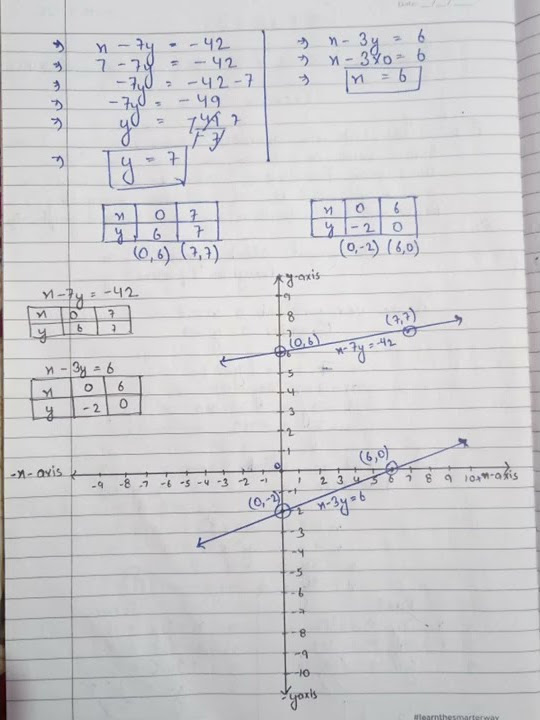 ⇒ x - 7y = -42
⇒ 7 - 7y = -42
⇒ -7y = -42 - 7
⇒ -7y = -49
⇒ y = -49 7
-7
⇒ y = 7
⇒ x - 3y = 6
⇒ x - 3×0 = 6
⇒ x = 6
x 0 7
y 6 7
(0,6) (7,7)
x 0 6
y -2 0
(0,-2) (6,0)
x - 7y = -42
x 0 7
y 6 7
x - 3y = 6
x 0 6
y -2 0
y-axis
9
8
7
6
5
4
3
2
1
(0,6)
(7,7)
x-7y=-42
(6,0)
-x-axis
0
-9 -8 -7 -6 -5 -4 -3 -2 -1 1 2 3 4 5 6 7 8 9 10 +x-axis
(0,-2)
x-3y=6
-1
-2
-3
-4
-5
-6
-7
-8
-9
-10
-yaxis
#learnthesmarterway